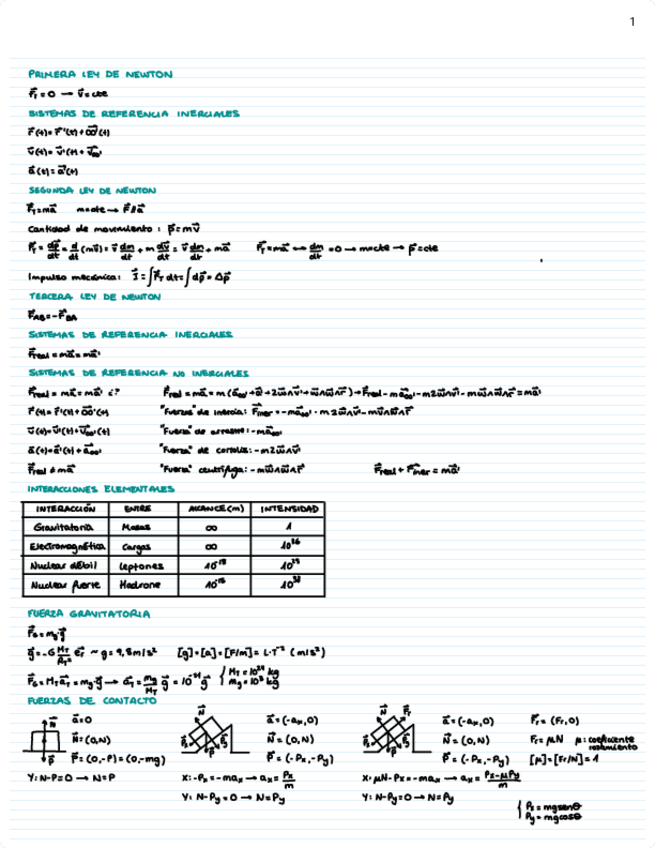 1
PRIMERA LEY DE NEWTON
F⃗_T = 0 → v⃗ = cte
SISTEMAS DE REFERENCIA INERCIALES
r⃗(t) = r⃗'(t) + OO⃗'(t)
v⃗(t) = v⃗'(t) + v⃗_oo'
a⃗(t) = a⃗'(t)
SEGUNDA LEY DE NEWTON
F⃗_T = ma⃗ m=cte → F⃗ // a⃗
Cantidad de movimiento : p⃗ = mv⃗
F⃗_T = dp⃗/dt = d/dt (mv⃗) = v⃗ dm/dt + m dv⃗/dt = v⃗ dm/dt + ma⃗ F⃗_T = ma⃗ ↔ dm/dt = 0 → m=cte → p⃗ = cte
Impulso mecánico: I⃗ = ∫F⃗_T dt = ∫dp⃗ = Δp⃗
TERCERA LEY DE NEWTON
F⃗_AB = -F⃗_BA
SISTEMAS DE REFERENCIA INERCIALES
F⃗real = ma⃗ = ma⃗'
SISTEMAS DE REFERENCIA NO INERCIALES
F⃗real = ma⃗ = ma⃗' ¿? F⃗real = ma⃗ = m(a⃗_oo' + a⃗' + 2w⃗∧v⃗' + w⃗∧w⃗∧r⃗') → F⃗real - ma⃗_oo' - m2w⃗∧v⃗' - mw⃗∧w⃗∧r⃗' = ma⃗'
r⃗(t) = r⃗'(t) + OO⃗'(t) "Fuerzas" de inercia: F⃗iner = -ma⃗_oo' - m2w⃗∧v⃗' - mw⃗∧w⃗∧r⃗'
v⃗(t) = v⃗'(t) + v⃗_oo'(t) "Fuerza" de arrastre: -ma⃗_oo'
a⃗(t) = a⃗'(t) + a⃗_oo' "Fuerza" de coriolis: -m2w⃗∧v⃗'
F⃗real ≠ ma⃗' "Fuerza" centrífuga: -mw⃗∧w⃗∧r⃗' F⃗real + F⃗iner = ma⃗'
INTERACCIONES ELEMENTALES
INTERACCIÓN ENTRE ALCANCE(m) INTENSIDAD
Gravitatoria Masas ∞ 1
Electromagnética Cargas ∞ 10³⁶
Nuclear débil Leptones
Nuclear fuerte Hadrone 10³⁸
FUERZA GRAVITATORIA
F⃗_G = m_g g⃗
g⃗ = -G M_T/R_T² e⃗_r ~ g = 9,8 m/s² [g] = [a] = [F/m] = L·T⁻² (m/s²)
F⃗_G = M_T a⃗_T = m_g g⃗ → a⃗_T = m_g/M_T g⃗ = 10⁻²¹ g⃗ { M_T = 10²⁴ kg
m_g = 10³ kg
FUERZAS DE CONTACTO
N⃗ a⃗ = 0 N⃗ a⃗ = (-a_x, 0) N⃗ F⃗r a⃗ = (-a_x, 0) F⃗r = (Fr, 0)
N⃗ = (0, N) N⃗ = (0, N) N⃗ = (0, N) Fr = μN μ: coeficiente rozamiento
P⃗ P⃗ = (0, -P) = (0, -mg) P⃗ P⃗ = (-Px, -Py) P⃗ P⃗ = (-Px, -Py) [μ] = [Fr/N] = 1
Y: N-P=0 → N=P X: -Px = -max → ax = Px/m X: μN - Px = -max → ax = Px-μPy/m
Y: N-Py=0 → N=Py Y: N-Py=0 → N=Py
{ Px = mgsenθ
Py = mgcosθ